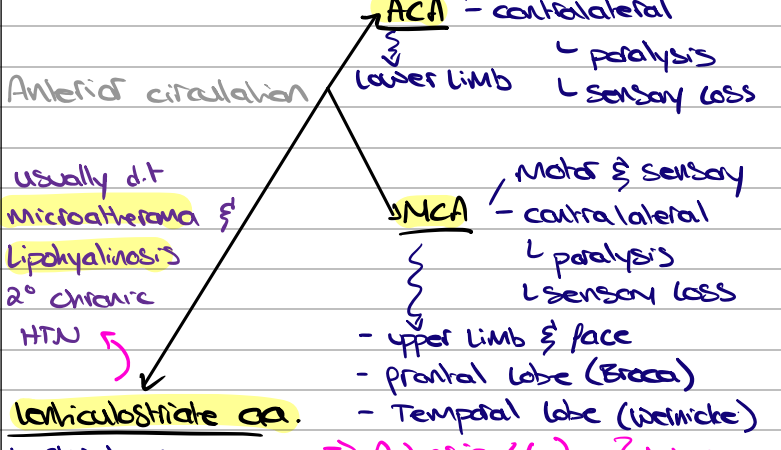 ACA - contralateral
└ paralysis
Lower Limb
└ sensory loss
Anterior circulation
usually d.t
Microatheroma &
Lipohyalinosis
2° chronic
HTN
Motor & sensory
MCA - contralateral
└ paralysis
└ sensory loss
- upper Limb & face
- frontal lobe (Broca)
- Temporal lobe (Wernicke)
Lenticulostriate aa.